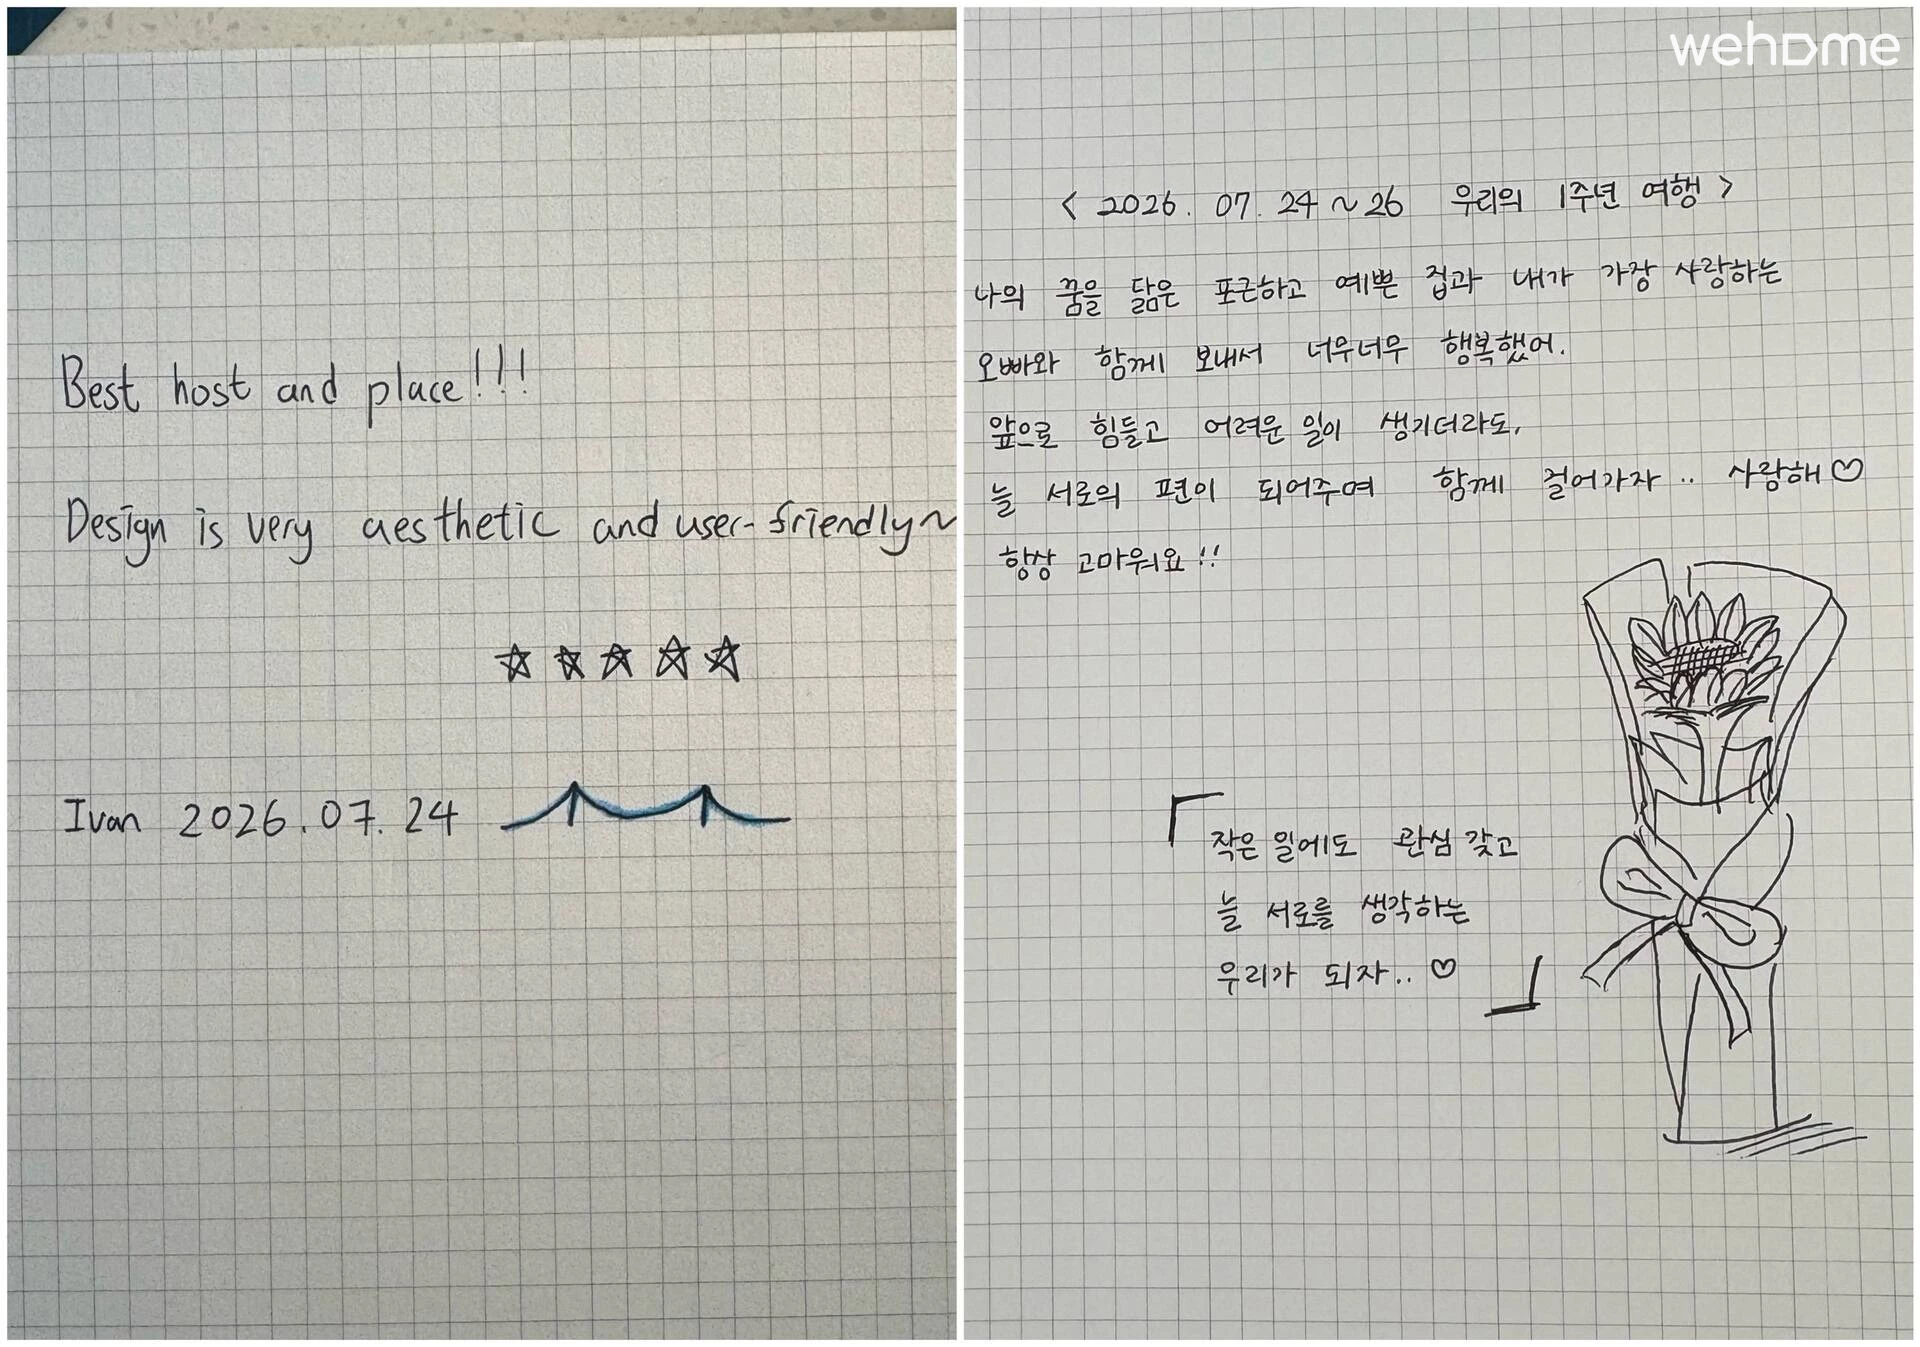 Best host and place!!!
Design is very aesthetic and user-friendly~
☆☆☆☆☆
Ivan 2026.07.24
wehome
< 2026. 07. 24 ~ 26 우리의 1주년 여행 >
나의 꿈을 닮은 포근하고 예쁜 집과 내가 가장 사랑하는
오빠와 함께 보내서 너무너무 행복했어.
앞으로 힘들고 어려운 일이 생기더라도,
늘 서로의 편이 되어주며 함께 걸어가자.. 사랑해♡
항상 고마워요!!
「작은 일에도 관심 갖고
늘 서로를 생각하는
우리가 되자..♡」